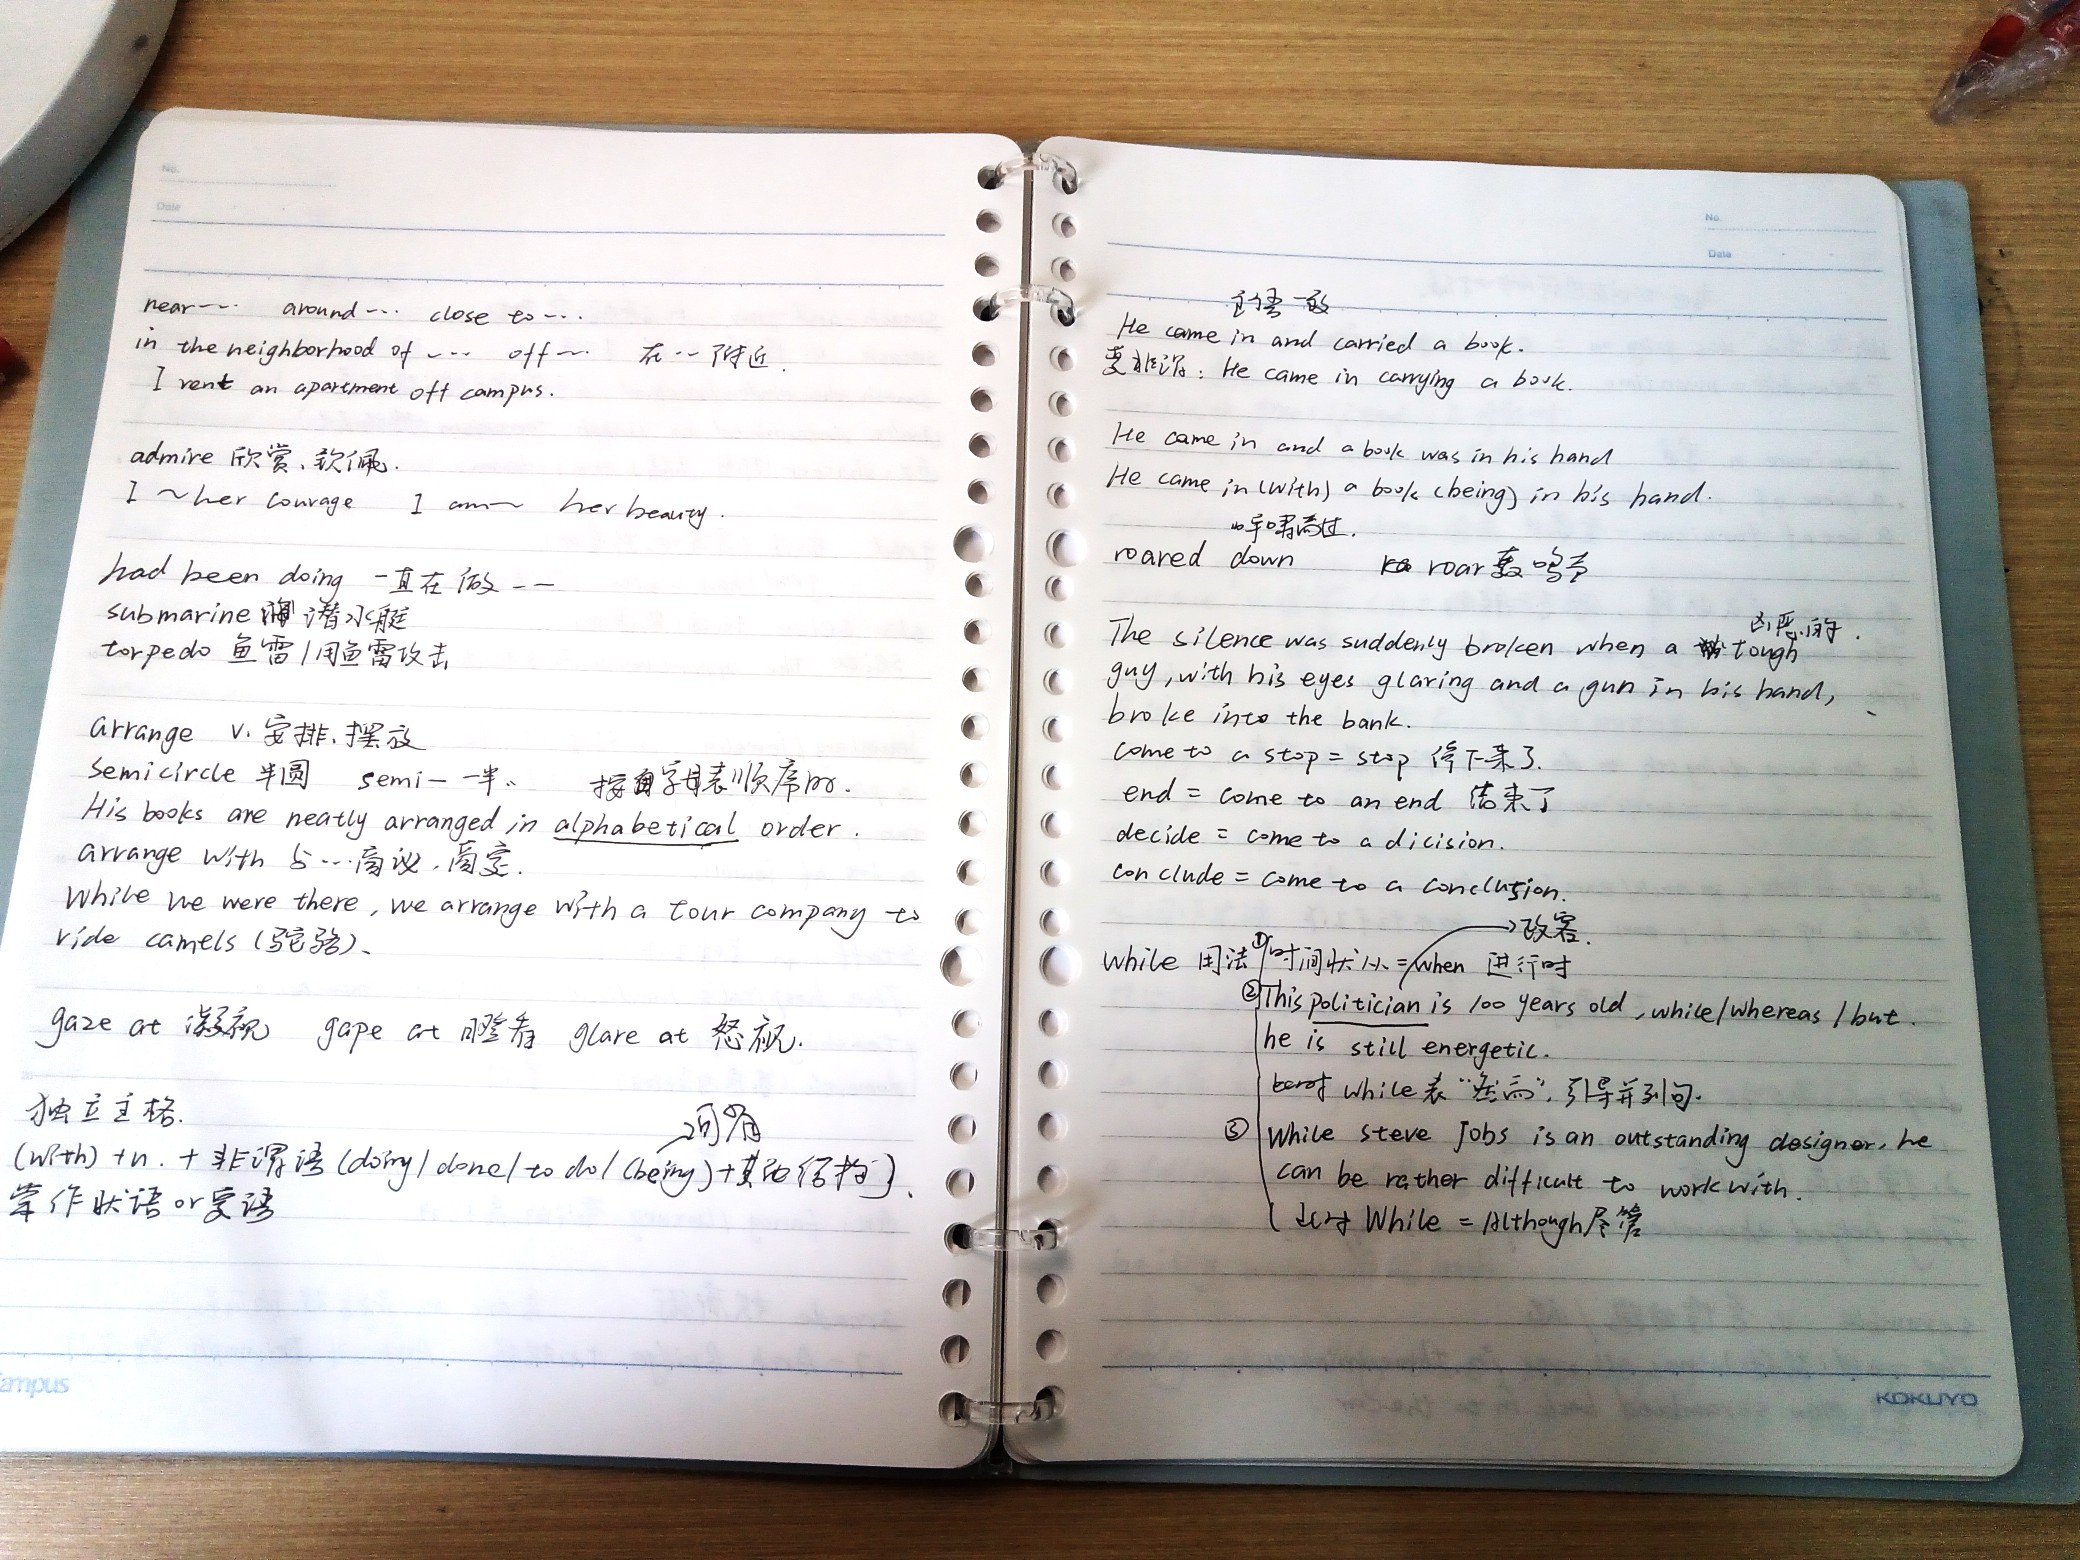 No.
Date
near…… around…… close to……
in the neighborhood of …… off…… 在……附近.
I rent an apartment off campus.
admire 欣赏、钦佩.
I ~ her courage I am ~ her beauty.
had been doing 一直在做……
submarine 潜水艇
torpedo 鱼雷/用鱼雷攻击
arrange v. 安排、摆放
semicircle 半圆 semi— 一半.. 按字母表顺序的.
His books are neatly arranged in alphabetical order.
arrange with 与…商议.商定.
While we were there, we arrange with a tour company to
ride camels (骆驼).
gaze at 凝视 gape at 瞪着 glare at 怒视.
独立主格. 可省
(with) + n. + 非谓语 (doing/done/to do/(being)+其他结构).
常作状语or定语
Campus
No.
Date
主语一致
He came in and carried a book.
变非谓: He came in carrying a book.
He came in and a book was in his hand
He came in (with) a book (being) in his hand.
呼啸而过.
roared down roar 轰鸣声
凶恶的.
The silence was suddenly broken when a tough
guy, with his eyes glaring and a gun in his hand,
broke into the bank.
come to a stop = stop 停下来了.
end = come to an end 结束了
decide = come to a dicision.
conclude = come to a conclusion.
政客.
while 用法 ① 时间状从 = when 进行时
② This politician is 100 years old, while/whereas/but.
he is still energetic.
while 表“然而”, 引导并列句.
③ While steve Jobs is an outstanding designer, he
can be rather difficult to work with.
此时 While = Although 尽管
KOKUYO